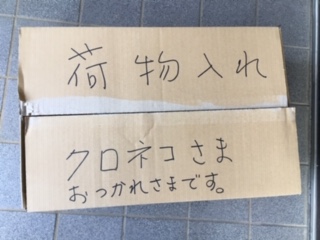 荷物入れ
クロネコさま
おつかれさまです。